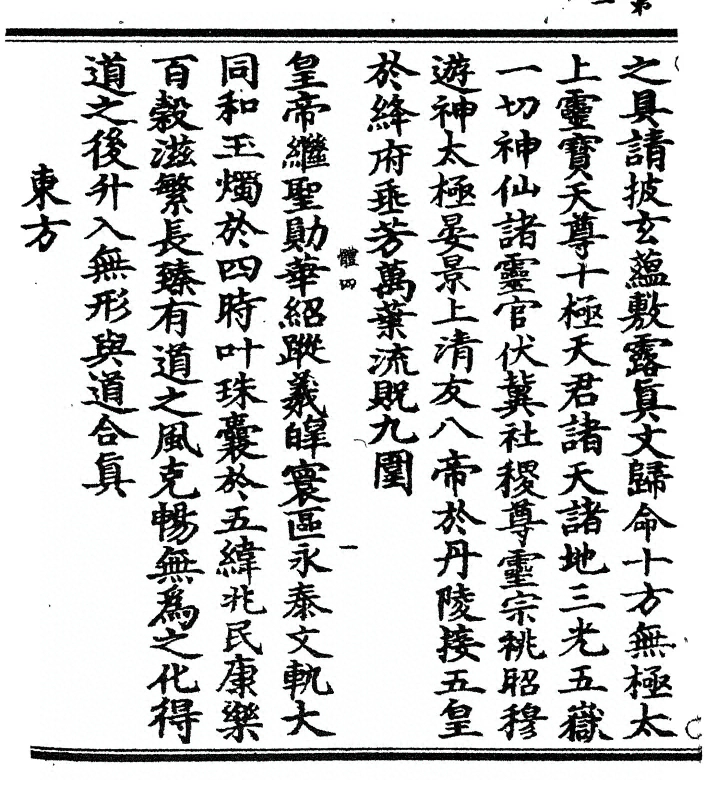 之具請披玄蘊敷露眞文歸命十方無極太
上靈寶天尊十極天君諸天諸地三光五嶽
一切神仙諸靈官伏冀社稷尊靈宗祧昭穆
遊神太極晏景上清友八帝於丹陵接五皇
於絳府垂芳萬葉流貺九圍
體四 一
皇帝繼聖勛華紹蹤羲皥寰區永泰文軌大
同和玉燭於四時叶珠囊於五緯兆民康樂
百穀滋繁長臻有道之風克暢無爲之化得
道之後升入無形與道合眞
東方